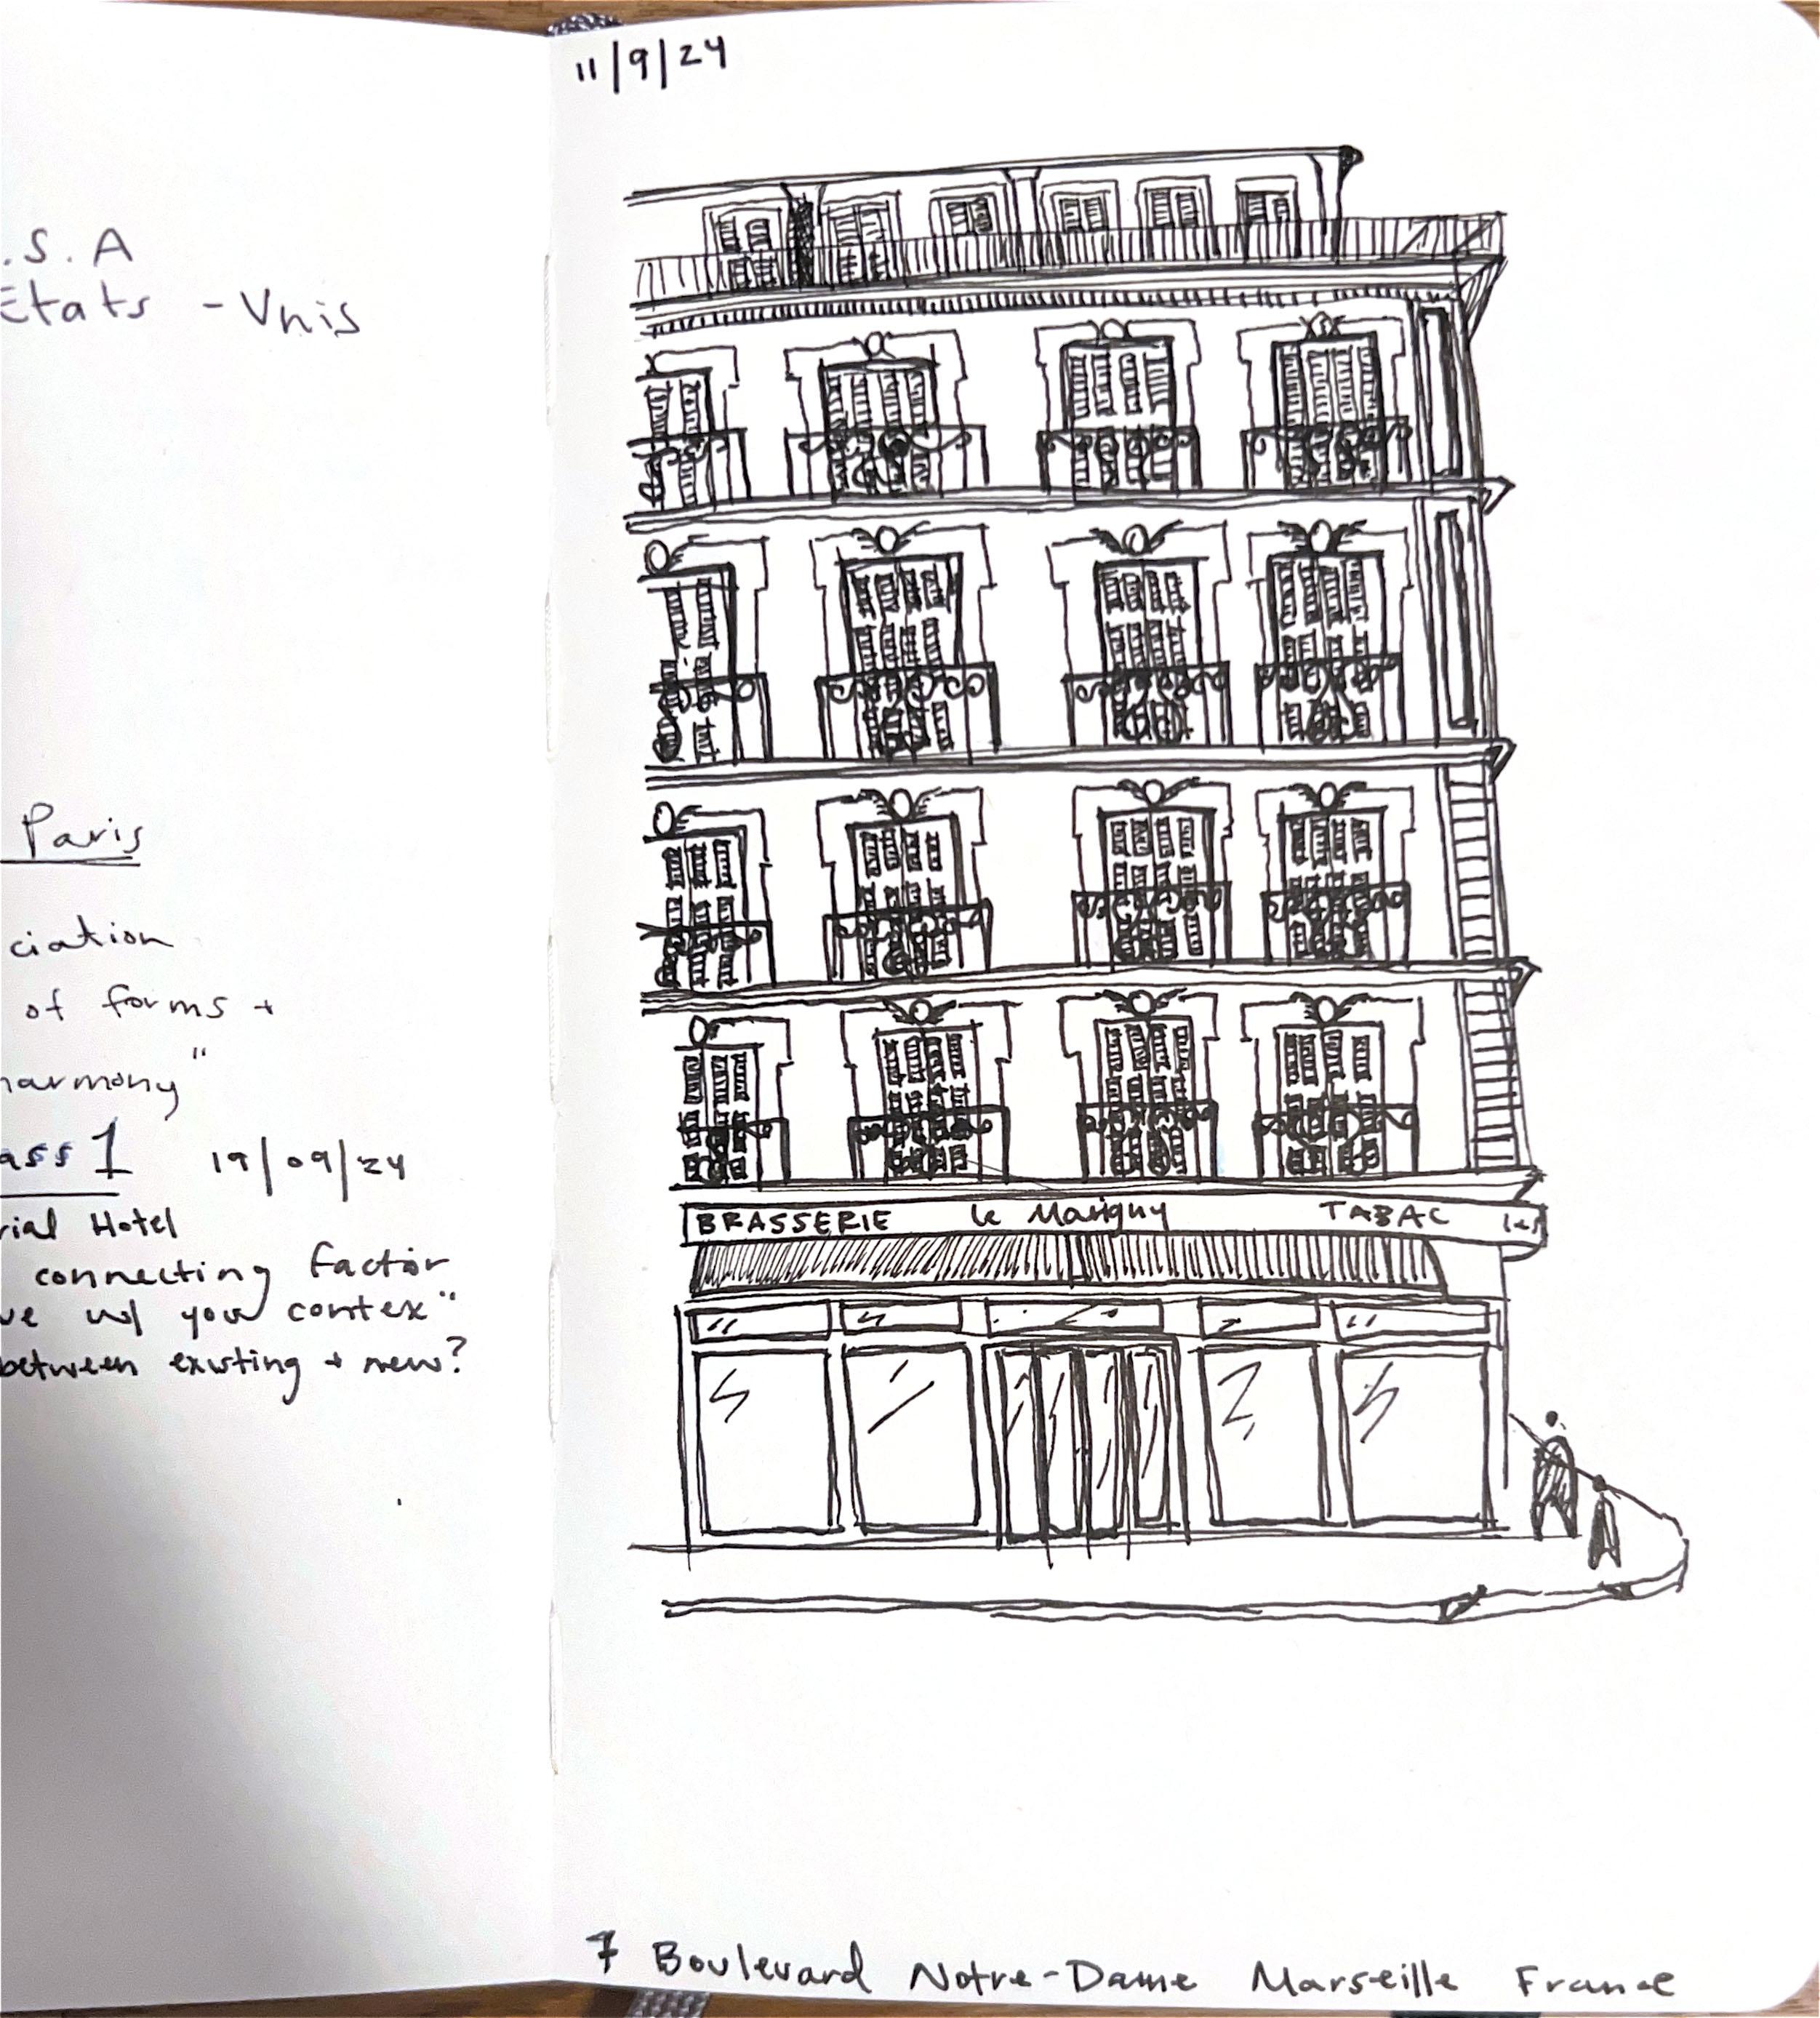 .S.A
Etats - Unis
Paris
ciation
of forms +
harmony"
ass 1 19/09/24
rial Hotel
connecting factor
ve w/ your contex"
between existing + new?
11/9/24
BRASSERIE le Marigny TABAC les
7 Boulevard Notre-Dame Marseille France